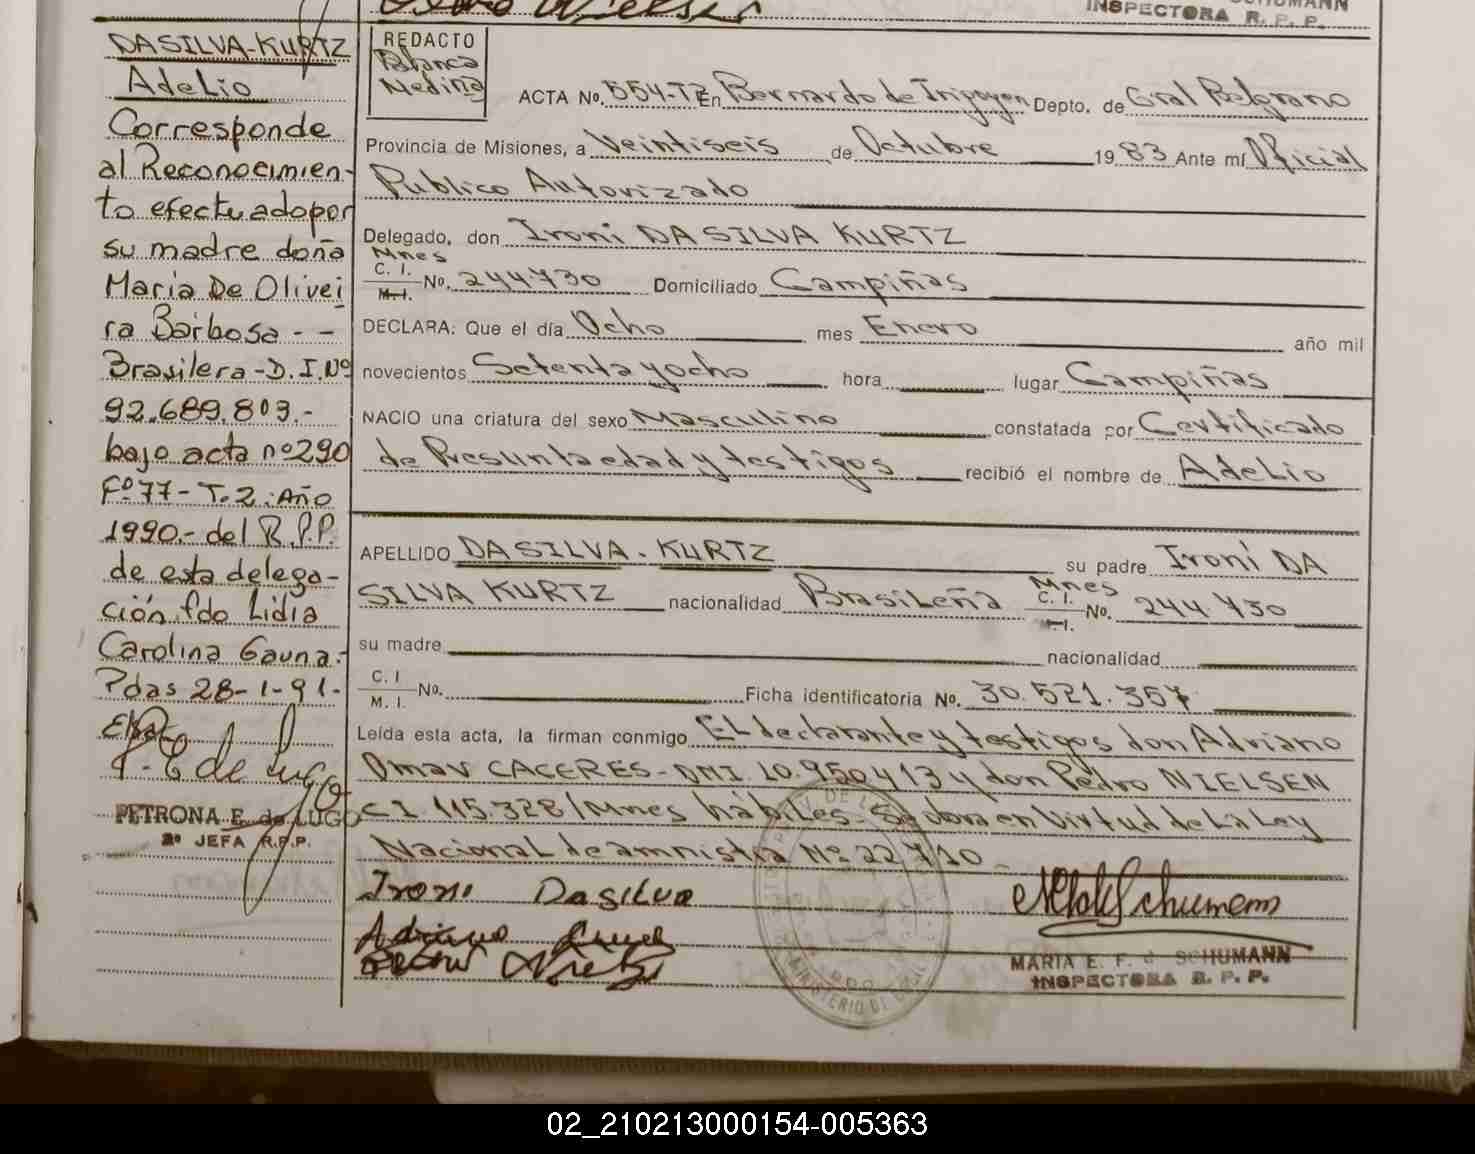 INSPECTORA R. P. P.
DASILVA-KURTZ
Adelio
Corresponde
al Reconocimien-
to efectuado por
su madre doña
Maria De Olivei
ra Barbosa - -
Brasilera - D.I.Nº
92.689.803.-
bajo acta nº 290
Fº 77 - T. 2. Año
1990.- del R.P.P.
de esta delega-
ción fdo Lidia
Carolina Gauna.-
Pdas 28-1-91-
P. E de Lugo
PETRONA E. de LUGO
2º JEFA R.P.P.
REDACTO
Blanca
Medina
ACTA No. 554-T2 En Bernardo de Irigoyen Depto. de Gral Belgrano
Provincia de Misiones, a Veintiseis de Octubre 1983 Ante mí Oficial
Publico Autorizado
Delegado, don Ironi DA SILVA KURTZ
Mnes
C. I.
M. I. No. 244.730 Domiciliado Campiñas
DECLARA: Que el día Ocho mes Enero año mil
novecientos Setenta y ocho hora lugar Campiñas
NACIO una criatura del sexo Masculino constatada por Certificado
de Presunta edad y testigos recibió el nombre de Adelio
APELLIDO DA SILVA - KURTZ su padre Ironi DA
SILVA KURTZ nacionalidad Brasileña Mnes C. I. M. I. No. 244.730
su madre nacionalidad
C. I
M. I. No. Ficha identificatoria No. 30.521.357
Leída esta acta, la firman conmigo El declarante y testigos don Adriano
Omar CACERES - DNI. 10.950.413 y don Pedro NIELSEN
C I. 115.328/Mnes hábiles - en Virtud de La Ley
Nacional de amnistia Nº 22.710 -
Ironi Dasilva
MARIA E. F. d SCHUMANN
INSPECTORA R. P. P.
02_210213000154-005363